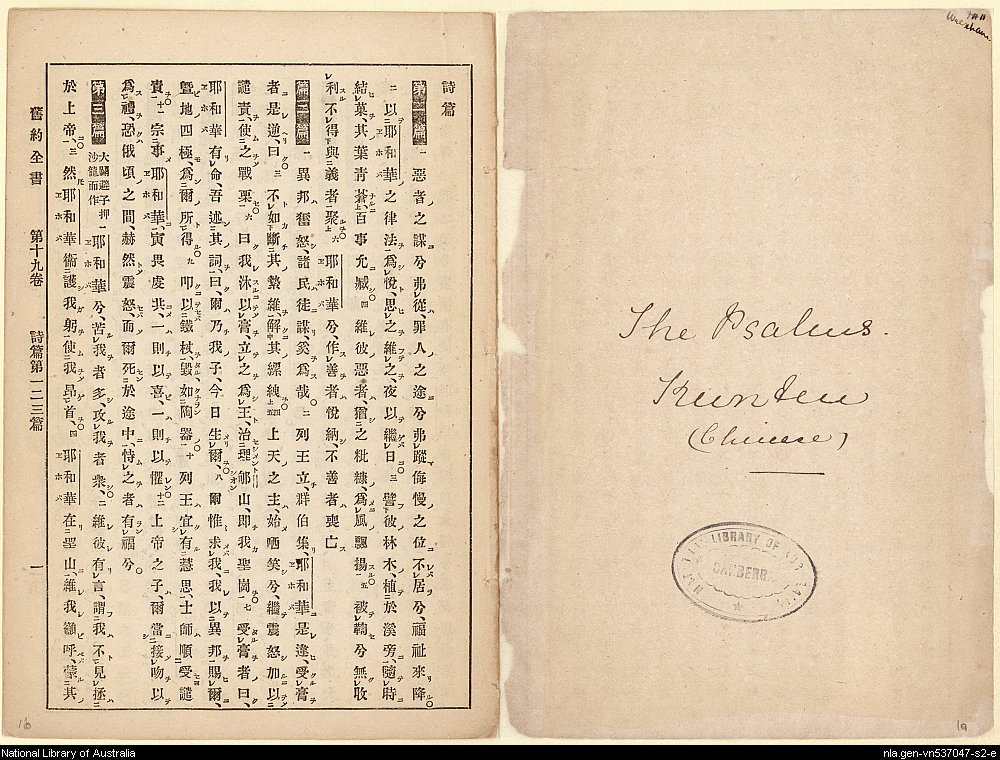 Wrexham
The Psalms.
Kunten
(Chinese)
LIBRARY OF AUSTRALIA
CANBERRA
1a
詩篇
第一篇 一 惡者之謀兮弗從、罪人之途兮弗蹤侮慢之位不居兮、福祉來降
二 以耶和華之律法爲悅、思之維之、夜以繼日、三 譬彼林木、植於溪旁、隨時
結菓、其葉靑蒼、百事允臧、四 維彼惡者、猶之粃糠、爲風飄揚、五 被鞫兮無攸
利不得與義者聚、六 耶和華兮、作善者悅納、不善者喪亡
第二篇 一 異邦奮怒、諸民徒謀奚爲哉、二 列王立、群伯集、耶和華是違、受膏
者是逆、曰三 不如斷其縶維、解其縲絏、四 上天之主、始哂笑兮、繼震怒加以
譴責、使之戰栗、六 曰我沐以膏立之爲王、治理郇山、卽我聖崗、七 受膏者曰、
耶和華有命、吾述其詞、曰、爾乃我子、今日生爾、八 爾惟求我、我以異邦賜爾、
曁地四極、爲爾所得、九 叩以鐵杖、毀如陶器、十 列王宜有慧思、士師順受譴
責、十一 宗事耶和華、寅畏虔共、一則以喜、一則以懼、十二 上帝之子、爾當接吻以
爲禮、恐俄頃之間、赫然震怒、而爾死於途中、恃之者有福兮
第三篇 大闢避子押沙龍而作 一 耶和華兮、苦我者多、攻我者衆、二 維彼有言、謂我不見拯
於上帝、三 然耶和華衛護我躬、使我昂首、四 耶和華在聖山、維我籲呼、蒙其
舊約全書 第十九卷 詩篇第一二三篇 一
1b
National Library of Australia
nla.gen-vn537047-s2-e